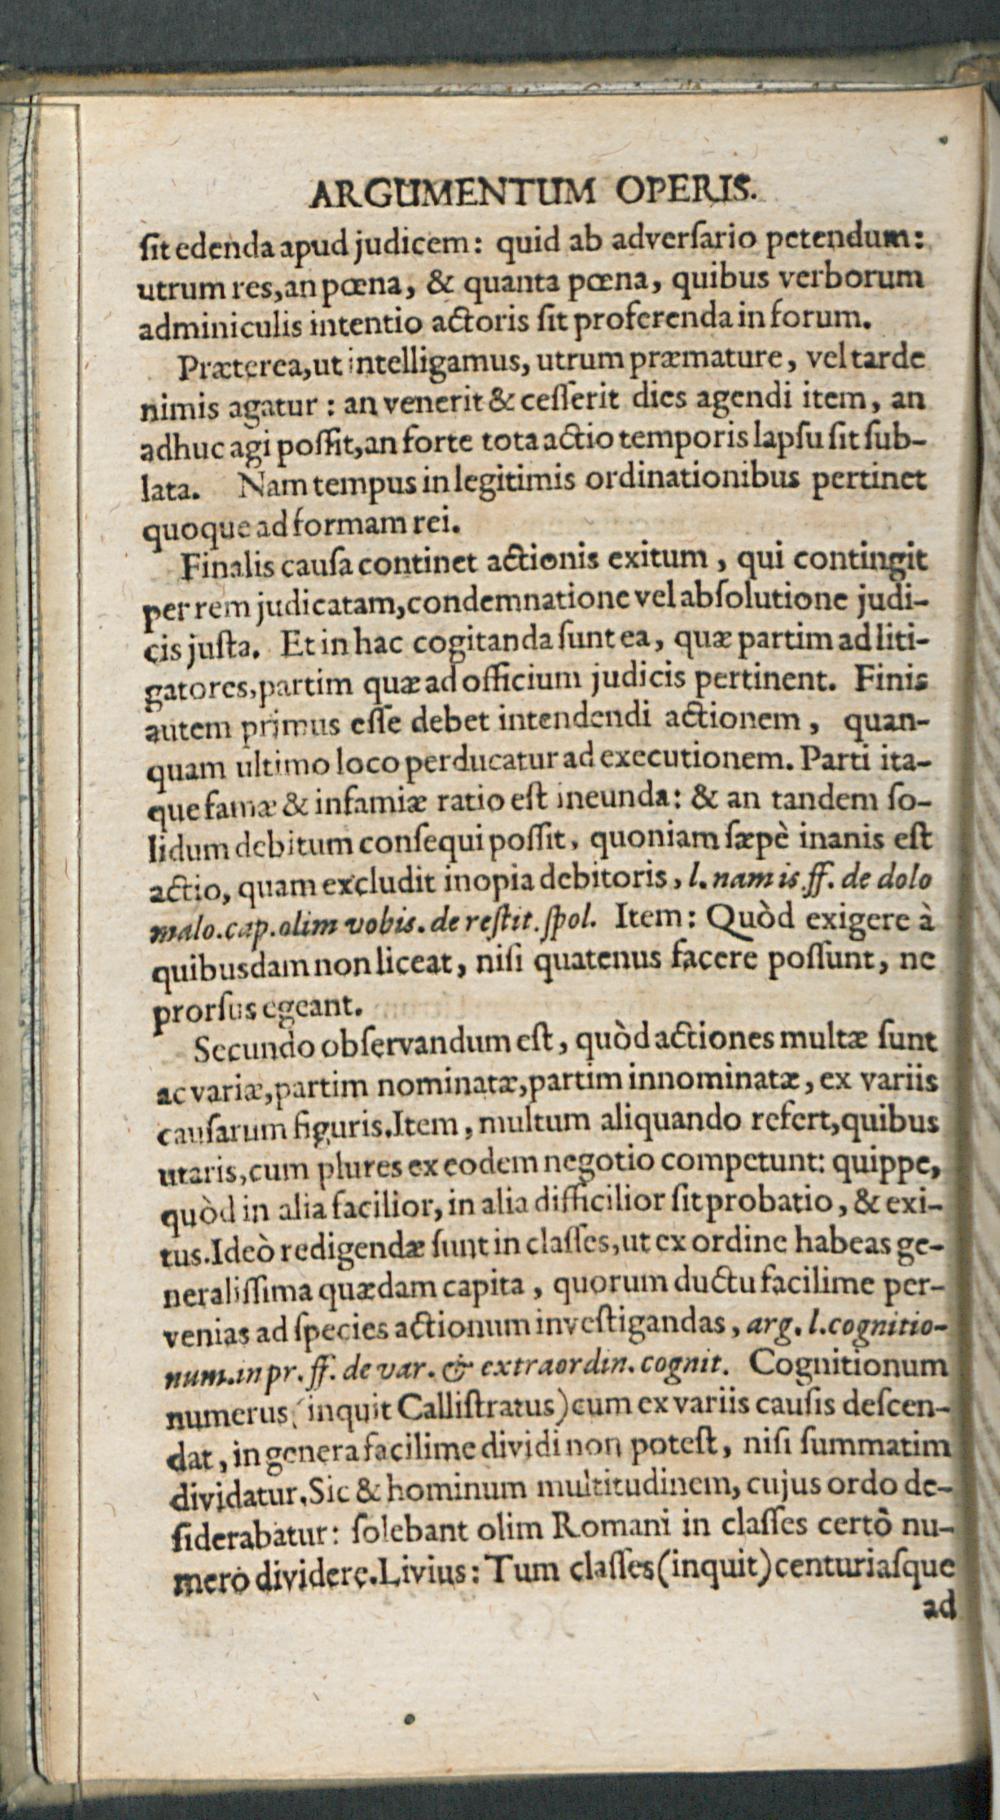 ARGUMENTUM OPERIS.
ſit edenda apud judicem: quid ab adverſario petendum:
utrum res, an pœna, & quanta pœna, quibus verborum
adminiculis intentio actoris ſit proferenda in forum.
Præterea, ut intelligamus, utrum præmature, vel tarde
nimis agatur: an venerit & ceſſerit dies agendi item, an
adhuc agi poſſit, an forte tota actio temporis lapſu ſit ſub-
lata. Nam tempus in legitimis ordinationibus pertinet
quoque ad formam rei.
Finalis cauſa continet actionis exitum, qui contingit
per rem judicatam, condemnatione vel abſolutione judi-
cis juſta. Et in hac cogitanda ſunt ea, quæ partim ad liti-
gatores, partim quæ ad officium judicis pertinent. Finis
autem primus eſſe debet intendendi actionem, quan-
quam ultimo loco perducatur ad executionem. Parti ita-
que famæ & infamiæ ratio eſt ineunda: & an tandem ſo-
lidum debitum conſequi poſſit, quoniam ſæpè inanis eſt
actio, quam excludit inopia debitoris, l. nam is ff. de dolo
malo. cap. olim vobis. de reſtit. ſpol. Item: Quòd exigere à
quibusdam non liceat, niſi quatenus facere poſſunt, ne
prorſus egeant.
Secundo obſervandum eſt, quòd actiones multæ ſunt
ac variæ, partim nominatæ, partim innominatæ, ex variis
cauſarum figuris. Item, multum aliquando refert, quibus
utaris, cum plures ex eodem negotio competunt: quippe,
quòd in alia facilior, in alia difficilior ſit probatio, & exi-
tus. Ideò redigendæ ſunt in claſſes, ut ex ordine habeas ge-
neraliſſima quædam capita, quorum ductu facilime per-
venias ad ſpecies actionum inveſtigandas, arg. l. cognitio-
num. in pr. ff. de var. & extraordin. cognit. Cognitionum
numerus (inquit Calliſtratus) cum ex variis cauſis deſcen-
dat, in genera facilime dividi non poteſt, niſi ſummatim
dividatur. Sic & hominum multitudinem, cujus ordo de-
ſiderabatur: ſolebant olim Romani in claſſes certô nu-
merò dividere. Livius: Tum claſſes (inquit) centuriaſque
ad